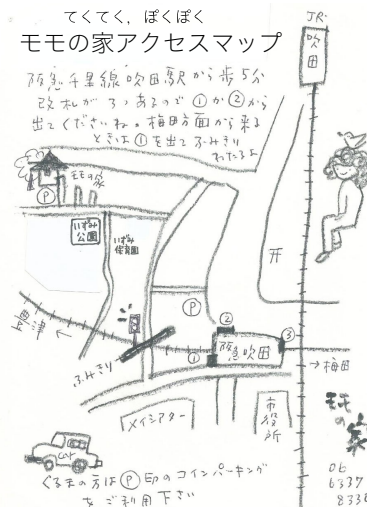 てくてく，ぽくぽく
モモの家アクセスマップ
阪急千里線吹田駅から歩5分
改札が3つあるので①か②から
出てくださいね。梅田方面から来る
ときは①を出てふみきり
わたるよ
JR.
吹田
モモの家
P
いずみ
公園
いずみ
保育園
P
②
③
①
阪急吹田
豊津 ←
ふみきり
→梅田
メイシアター
市役所
モモの家
06
6337
8330
くるまの方はⓅ印のコインパーキング
をご利用下さい